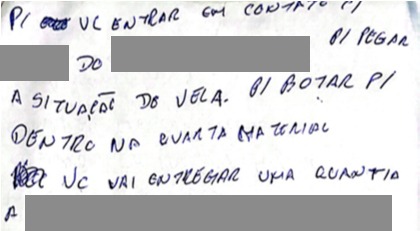 P/ VC ENTRAR EM CONTATO P/
P/ PEGAR
DO
A SITUAÇÃO DO VELA. P/ BOTAR P/
DENTRO NA QUARTA MATERIAL
VC VAI ENTREGAR UMA QUANTIA
A